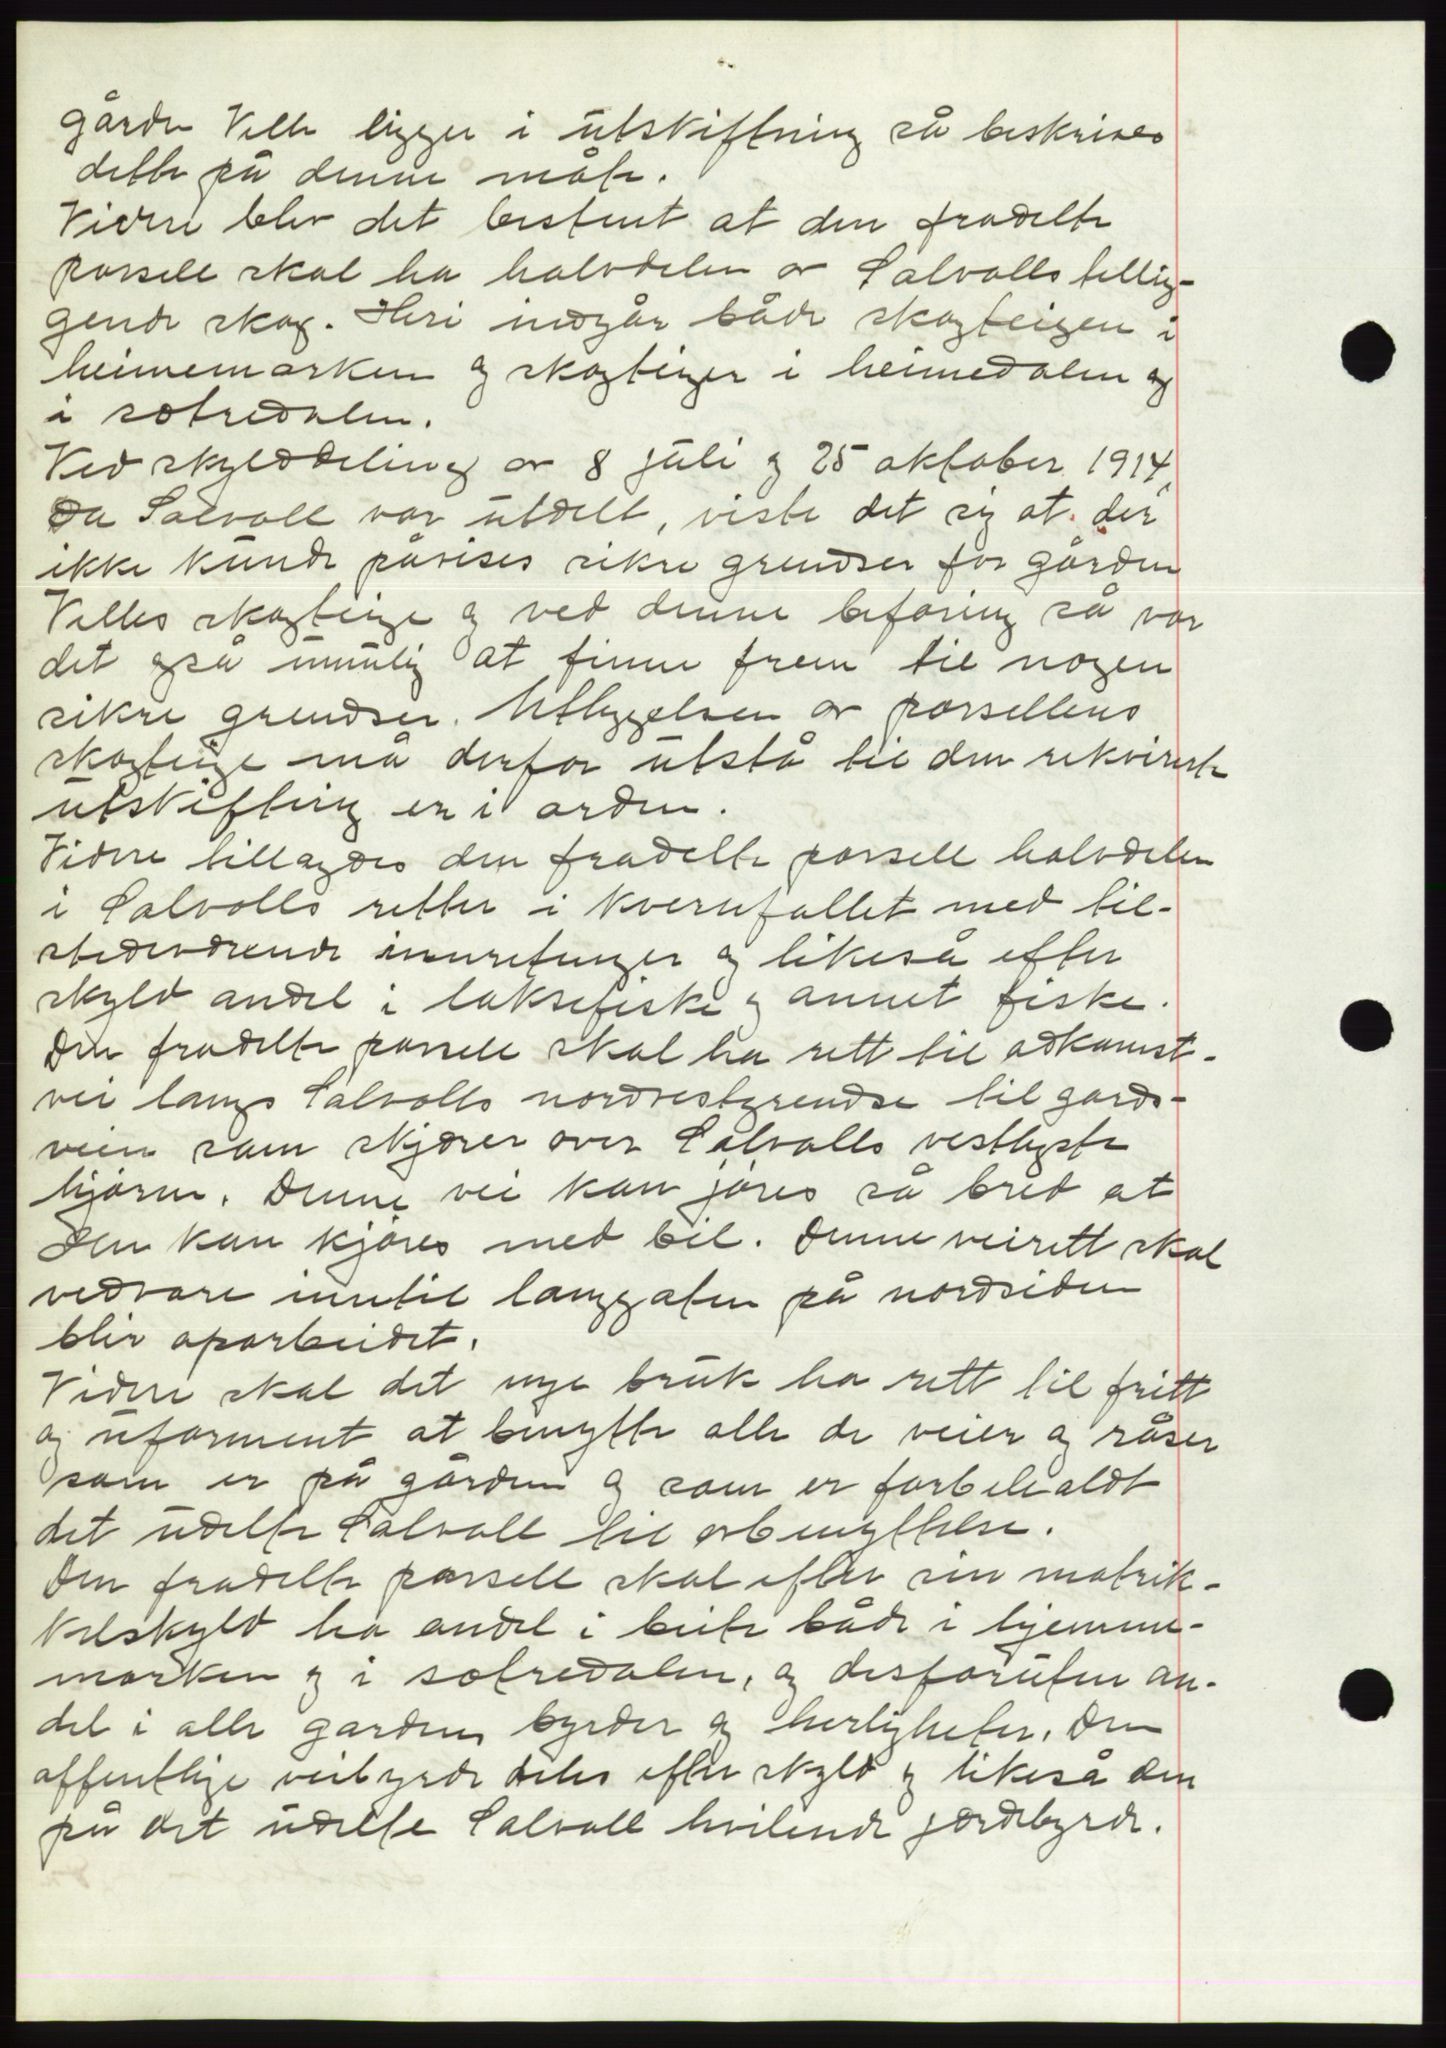 gården Velle ligger i utskiftning så beskrives
dette på denne måte.
Videre blev det bestemt at den fradelte
parsell skal ha halvdelen av Salvolls tillig-
gende skog. Heri indgår både skogteigen i
heimemarken og skogteiger i heimedalen og
i sætredalen.
Ved skylddeling av 8 juli og 25 oktober 1914,
Da Salvoll var utdelt, viste det sig at der
ikke kunde påvises sikre grendser for gården
Velles skogteige og ved denne befaring så var
det også umulig at finne frem til nogen
sikre grendser. Utlyggelsen av parsellens
skogteige må derfor utstå til den rekvirerte
utskifting er i orden.
Videre tillagdes den fradelte parsell halvdelen
i Salvolls retter i kvernfallet med til-
stedeværende innretunger og likeså efter
skyld andel i laksefiske og annet fiske.
Den fradelte parsell skal ha rett til adkomst-
vei langs Salvolls nordvestgrendse til gards-
veien som skjærer over Salvolls vestligste
hjørne. Denne vei kan jøres så bred at
den kan kjøres med bil. Denne veirett skal
vedvare inntil langgaten på nordsiden
blir oparbeidet.
Videre skal det nye bruk ha rett til fritt
og uforment at benytte alle de veier og råser
som er på gården og som er forbeholdt
det udelte Salvoll til avbenyttelse.
Den fradelte parsell skal efter sin matrik-
kelskyld ha andel i beite både i hjemme-
marken og i sætredalen, og desforuten an-
del i alle gardens byrder og herligheter. Den
offentlige veibyrde deles efter skyld og likeså den
på det udelte Salvoll hvilende jordebyrde.